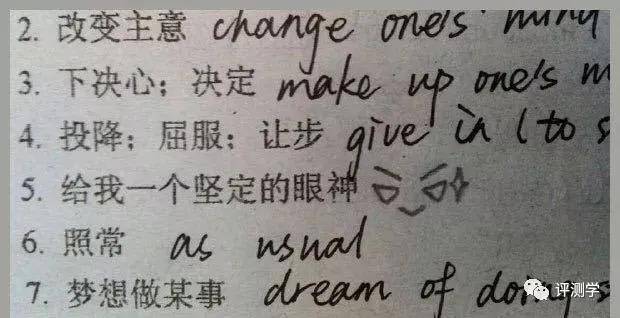 2. 改变主意 change one's mind
3. 下决心；决定 make up one's m
4. 投降；屈服；让步 give in (to s
5. 给我一个坚定的眼神
6. 照常 as usual
7. 梦想做某事 dream of doing s
评测学